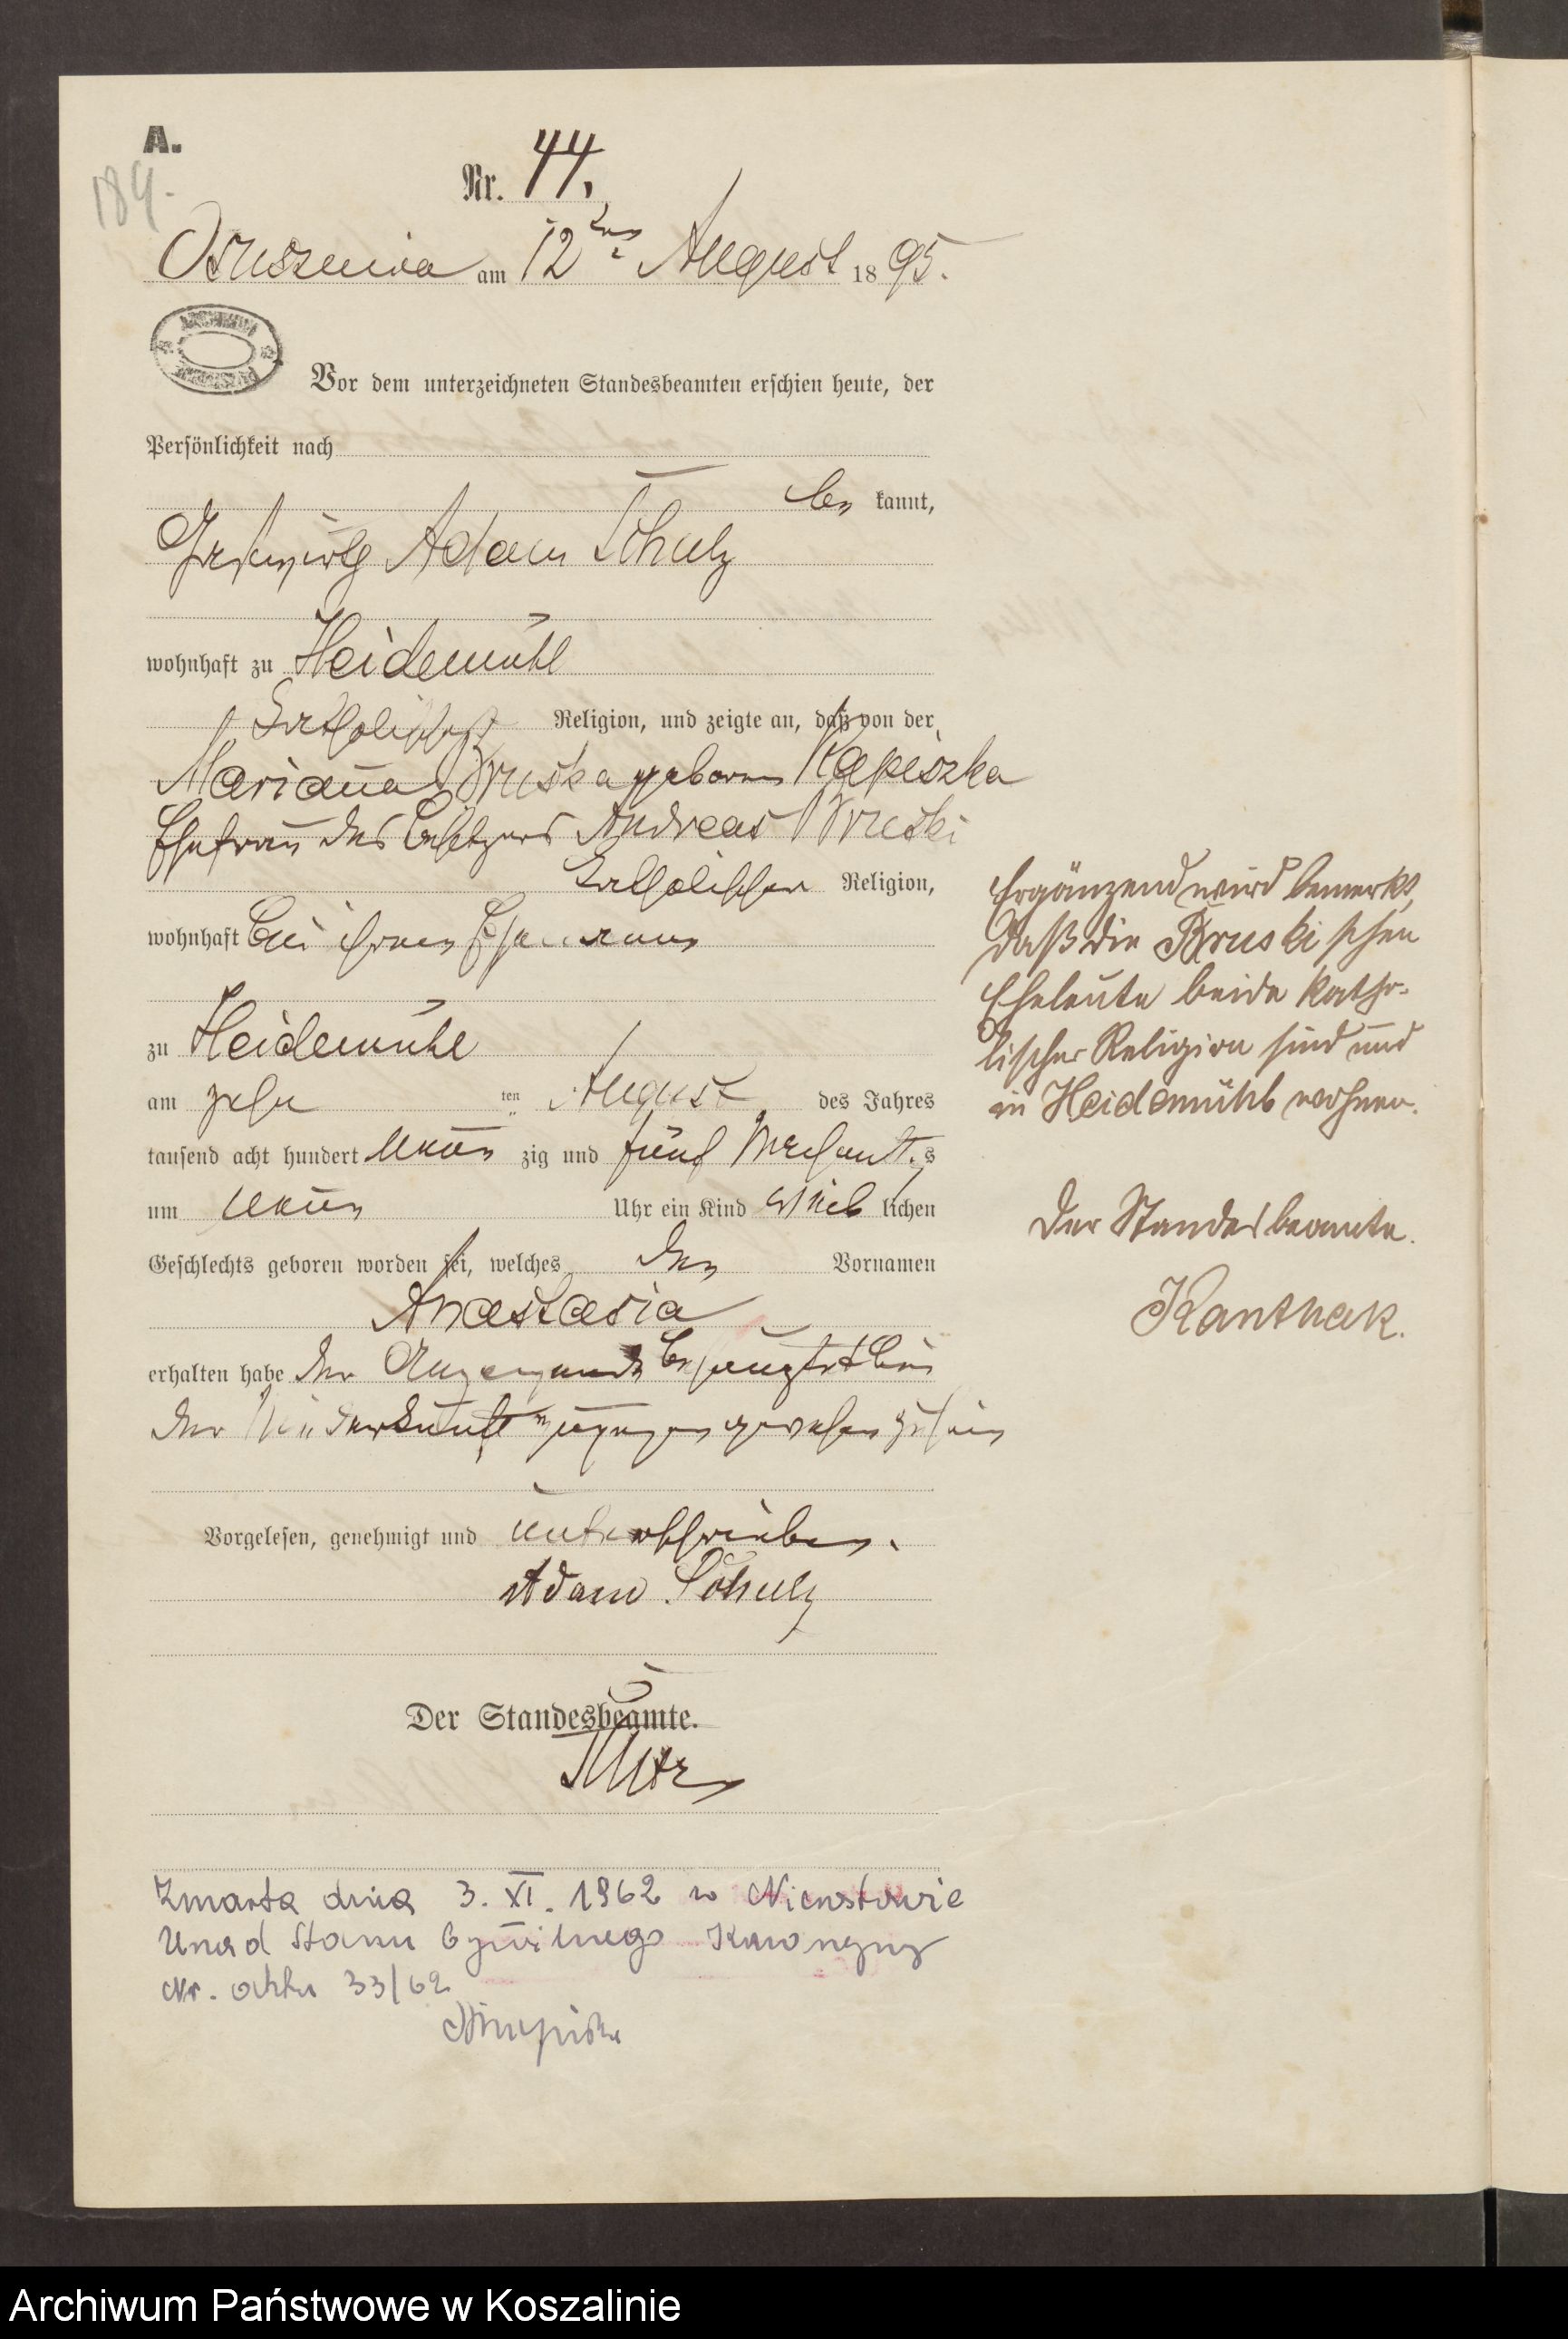 A.
184.
Nr. 44.
Osuszniza am 12ten August 1895.
Vor dem unterzeichneten Standesbeamten erschien heute, der
Persönlichkeit nach
be kannt,
Adam Schulz
wohnhaft zu Heidemühl
katholischer Religion, und zeigte an, daß von der
Marianna Bruska geboren
Ehefrau des Besitzers Andreas Bruski
katholischer Religion,
wohnhaft bei ihrem Ehemann
zu Heidemühl
am zehn ten August des Jahres
tausend acht hundert neun zig und fünf Vormitt. s
um neun Uhr ein Kind weib lichen
Geschlechts geboren worden sei, welches den Vornamen
Anastasia
erhalten habe der Anzeigende bei
der Niederkunft zugegen gewesen zu sein
Vorgelesen, genehmigt und unterschrieben.
Adam Schulz
Der Standesbeamte.
Ergänzend wird bemerkt,
daß die Bruski schen
Eheleute beide katho-
lischer Religion sind und
in Heidemühl wohnen.
Der Standesbeamte.
Kanthak.
Zmarła dnia 3. XI. 1962 w
Urząd Stanu Cywilnego
Nr. aktu 33/62
Archiwum Państwowe w Koszalinie